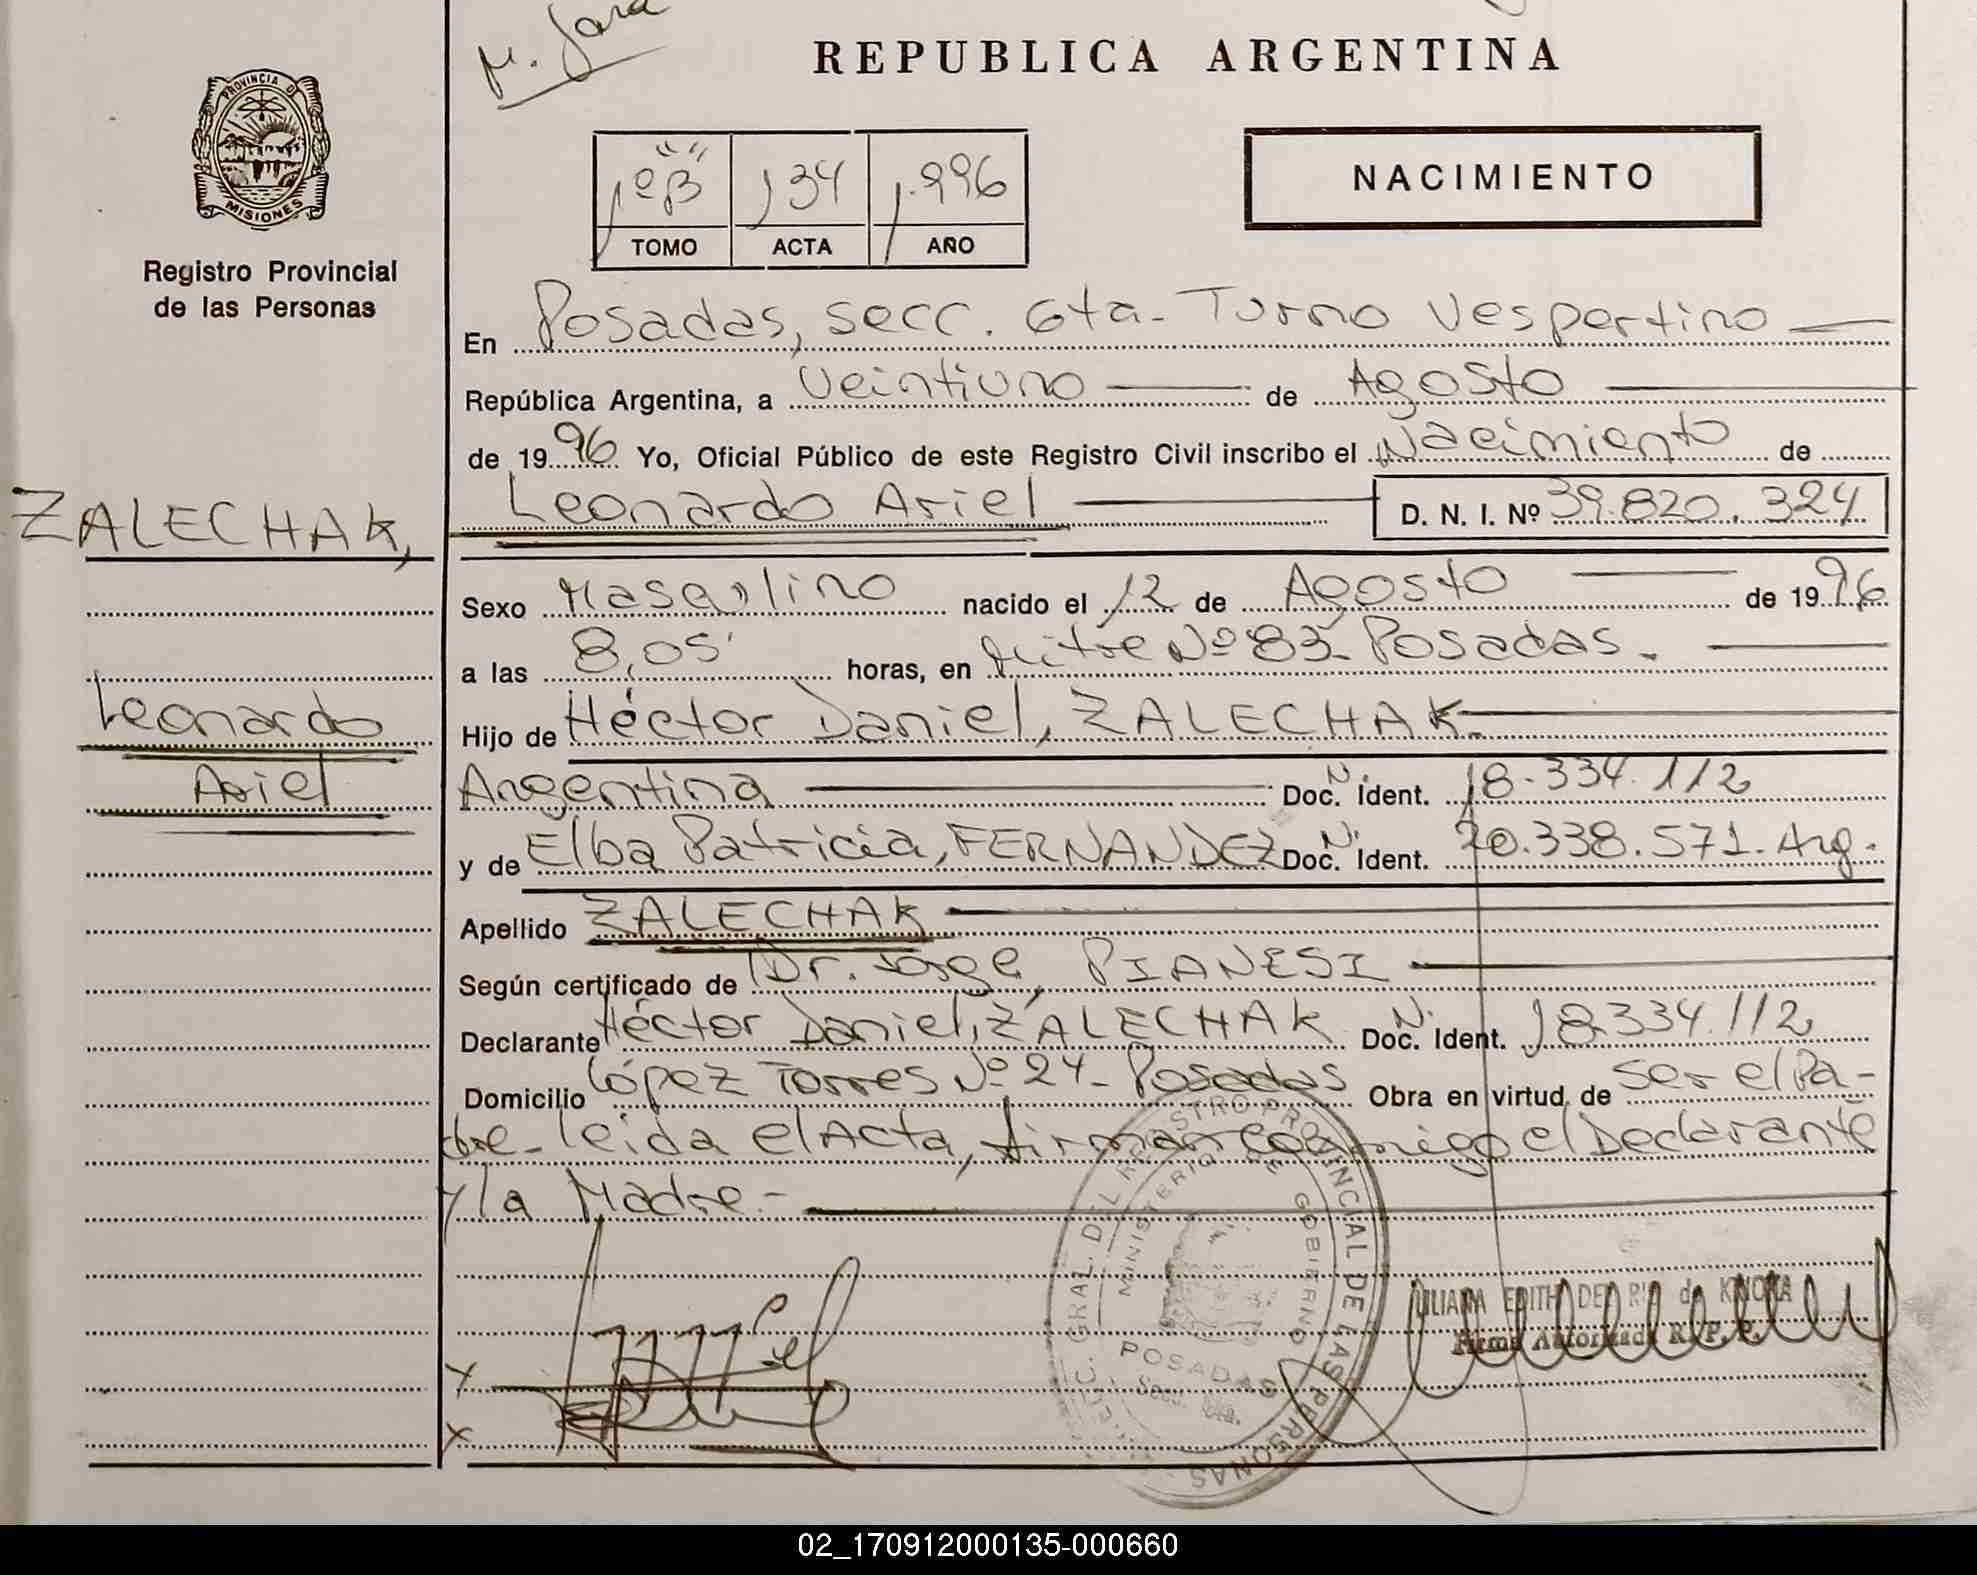 M. Jara
REPUBLICA ARGENTINA
PROVINCIA D
MISIONES
Registro Provincial
de las Personas
1º B 134 1.996
TOMO ACTA AÑO
NACIMIENTO
En Posadas, secc. 6ta- Turno Vespertino
República Argentina, a Veintiuno de Agosto
de 1996 Yo, Oficial Público de este Registro Civil inscribo el Nacimiento de
Leonardo Ariel D. N. I. Nº 39.820.324
ZALECHAK,
Leonardo
Ariel
Sexo Masculino nacido el 12 de Agosto de 1996
a las 8,05' horas, en Mitre Nº 83- Posadas.
Hijo de Héctor Daniel, ZALECHAK-
Argentina N. Doc. Ident. 18.334.112
y de Elba Patricia, FERNANDEZ N. Doc. Ident. 20.338.571. Arg.
Apellido ZALECHAK
Según certificado de Dr. Jorge, PIANESI
Declarante Héctor Daniel, ZALECHAK N. Doc. Ident. 18.334.112
Domicilio López Torres Nº 24- Posadas Obra en virtud de ser el Pa-
dre- leida el Acta, firman conmigo el Declarante
y la Madre.-
GRAL. DEL REGISTRO PROVINCIAL DE LAS PERSONAS
MINISTERIO DE GOBIERNO
POSADAS
Secc. 6ta.
LILIANA EDITH DEL R de
Firma Autorizada R. P. P.
02_170912000135-000660